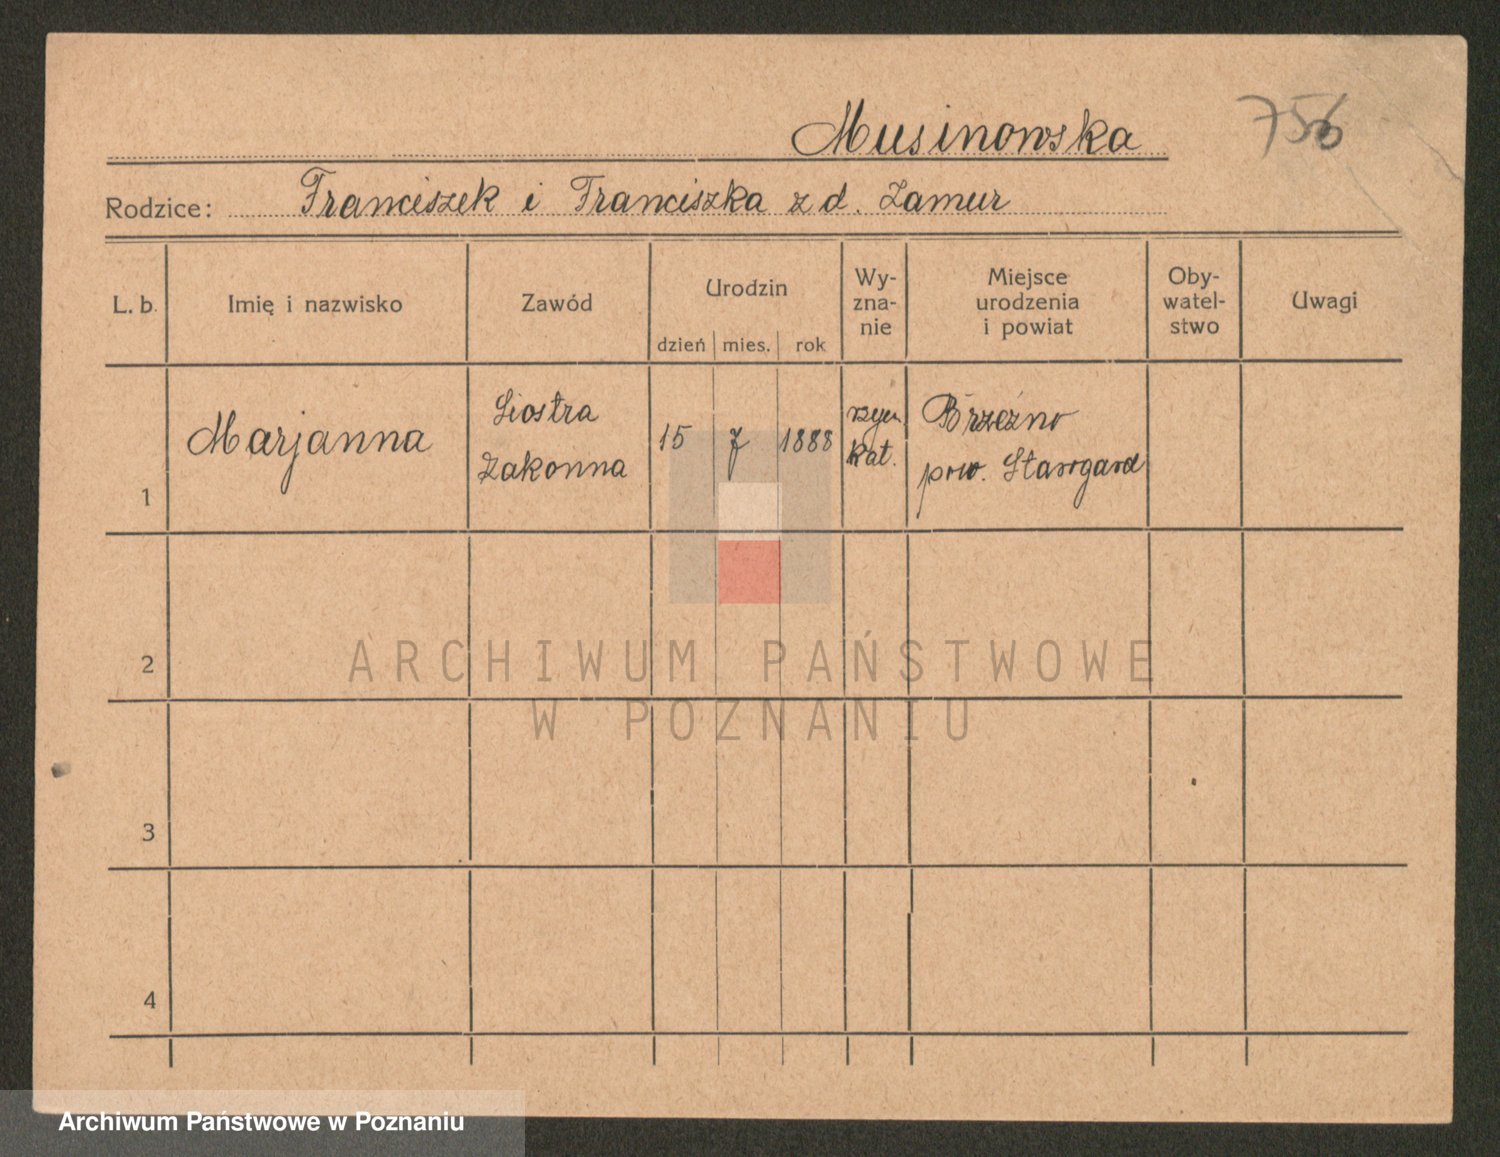 Musinowska
756
Rodzice: Franciszek i Franciszka z d. Zamur
L. b.
Imię i nazwisko
Zawód
Urodzin
dzień
mies.
rok
Wy-
zna-
nie
Miejsce
urodzenia
i powiat
Oby-
watel-
stwo
Uwagi
1
Marjanna
Siostra
Zakonna
15
7
1888
rzym.
kat.
Brzeźno
pow. Starogard
2
3
4
ARCHIWUM PAŃSTWOWE
W POZNANIU
Archiwum Państwowe w Poznaniu